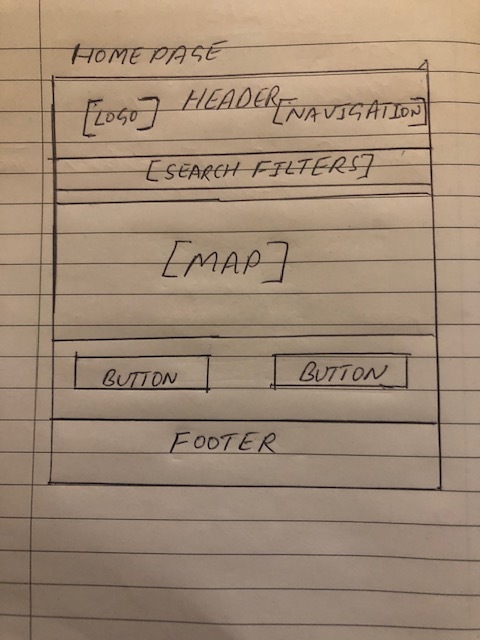 HOME PAGE
HEADER
[LOGO] [NAVIGATION]
[SEARCH FILTERS]
[MAP]
BUTTON BUTTON
FOOTER